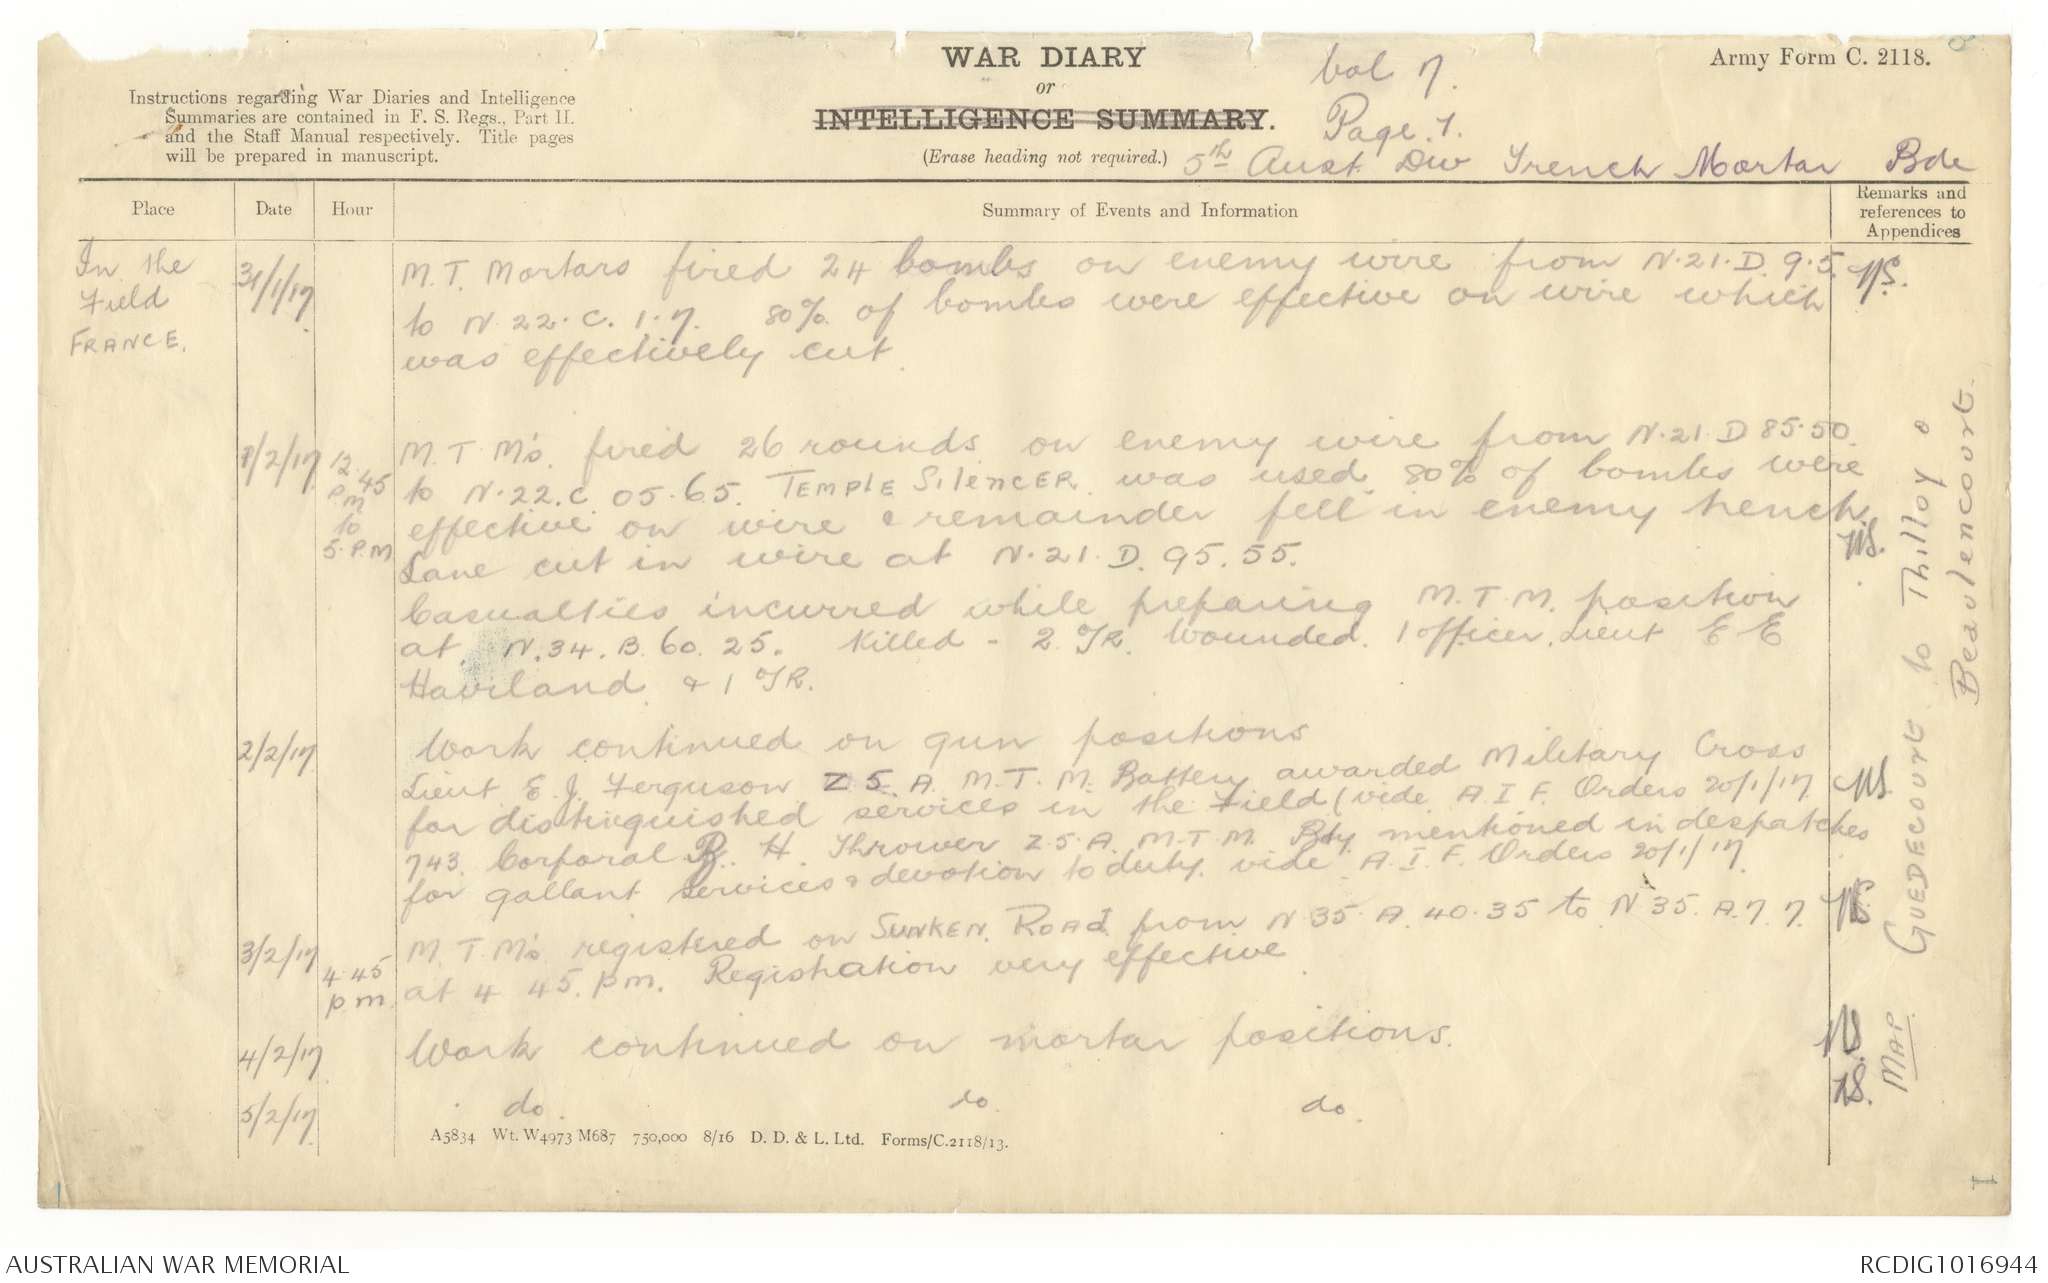 WAR DIARY
or
INTELLIGENCE SUMMARY.
(Erase heading not required.)
Army Form C. 2118.
Instructions regarding War Diaries and Intelligence
Summaries are contained in F. S. Regs., Part II.
and the Staff Manual respectively. Title pages
will be prepared in manuscript.
Vol 7.
Page. 1.
5th Aust. Div Trench Mortar Bde
Place
Date
Hour
Summary of Events and Information
Remarks and
references to
Appendices
In the
Field
FRANCE.
31/1/17
M.T. Mortars fired 24 bombs on enemy wire from N.21.D.9.5.
to N.22.C.1.7. 80% of bombs were effective on wire which
was effectively cut.
1/2/17
12.45
P.M
to
5.P.M
M.T.M's. fired 26 rounds on enemy wire from N.21.D 85.50.
to N.22.C. 05.65. TEMPLE SILENCER was used. 80% of bombs were
effective on wire & remainder fell in enemy trench.
Lane cut in wire at N.21.D.95.55.
Casualties incurred while preparing M.T.M. position
at N.34.B.60.25. Killed - 2 O/R. Wounded. 1 officer, Lieut E E
Haviland & 1 O/R.
2/2/17
Work continued on gun positions
Lieut E. J. Ferguson Z.5.A. M.T.M. Battery awarded Military Cross
for distinguished services in the Field (vide A.I.F. Orders 20/1/17
743. Corporal R. H. Thrower Z.5.A. M.T.M. Bty mentioned in despatches
for gallant services & devotion to duty. vide A.I.F. Orders 20/1/17.
3/2/17
4.45
pm
M.T.M's registered on SUNKEN ROAD from N 35.A.40.35 to N 35.A.7.7.
at 4 45. pm. Registration very effective
4/2/17
Work continued on mortar positions.
5/2/17
do. do. do.
MAP. GUEDECOURT to Thilloy &
Beaulencourt.
A5834 Wt. W4973 M687 750,000 8/16 D. D. & L. Ltd. Forms/C.2118/13.
AUSTRALIAN WAR MEMORIAL
RCDIG1016944